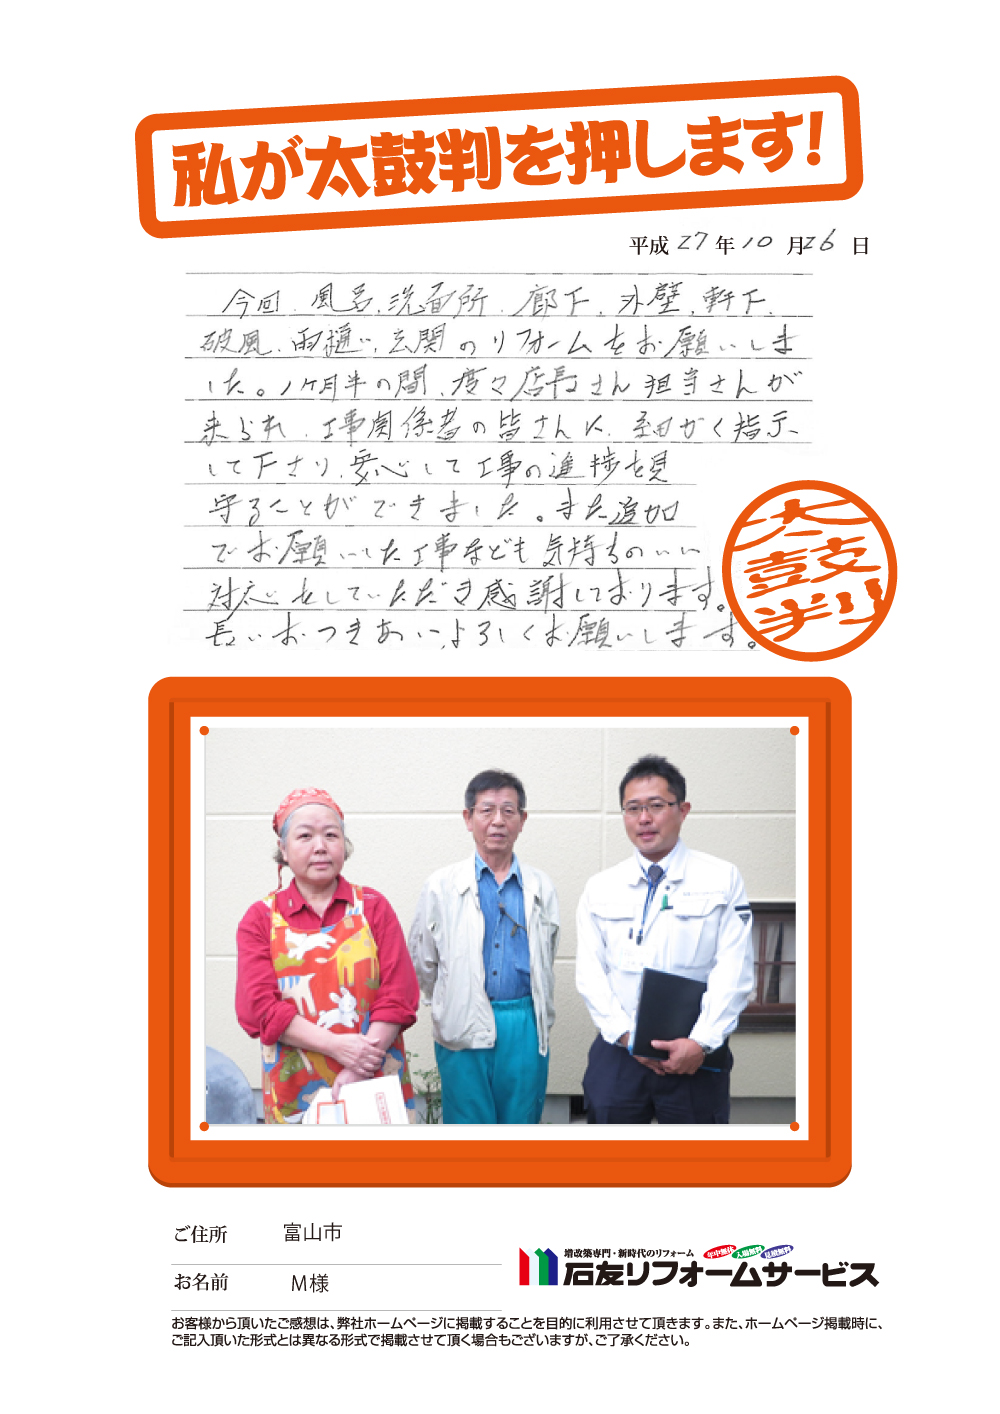 私が太鼓判を押します!
平成27年10月26日
今回、風呂、洗面所、廊下、外壁、軒下、
破風、雨樋い、玄関のリフォームをお願いしま
した。1ヶ月半の間、度々店長さん担当さんが
来られ、工事関係者の皆さんに、細かく指示
して下さり、安心して工事の進捗を見
守ることができました。また追加
でお願いした工事なども気持ちのいい
対応をしていただき感謝しております。
長いおつきあい、よろしくお願いします。
太鼓判
ご住所 富山市
お名前 M様
増改築専門・新時代のリフォーム 年中無休 入場無料 見積無料
石友リフォームサービス
お客様から頂いたご感想は、弊社ホームページに掲載することを目的に利用させて頂きます。また、ホームページ掲載時に、
ご記入頂いた形式とは異なる形式で掲載させて頂く場合もございますが、ご了承ください。